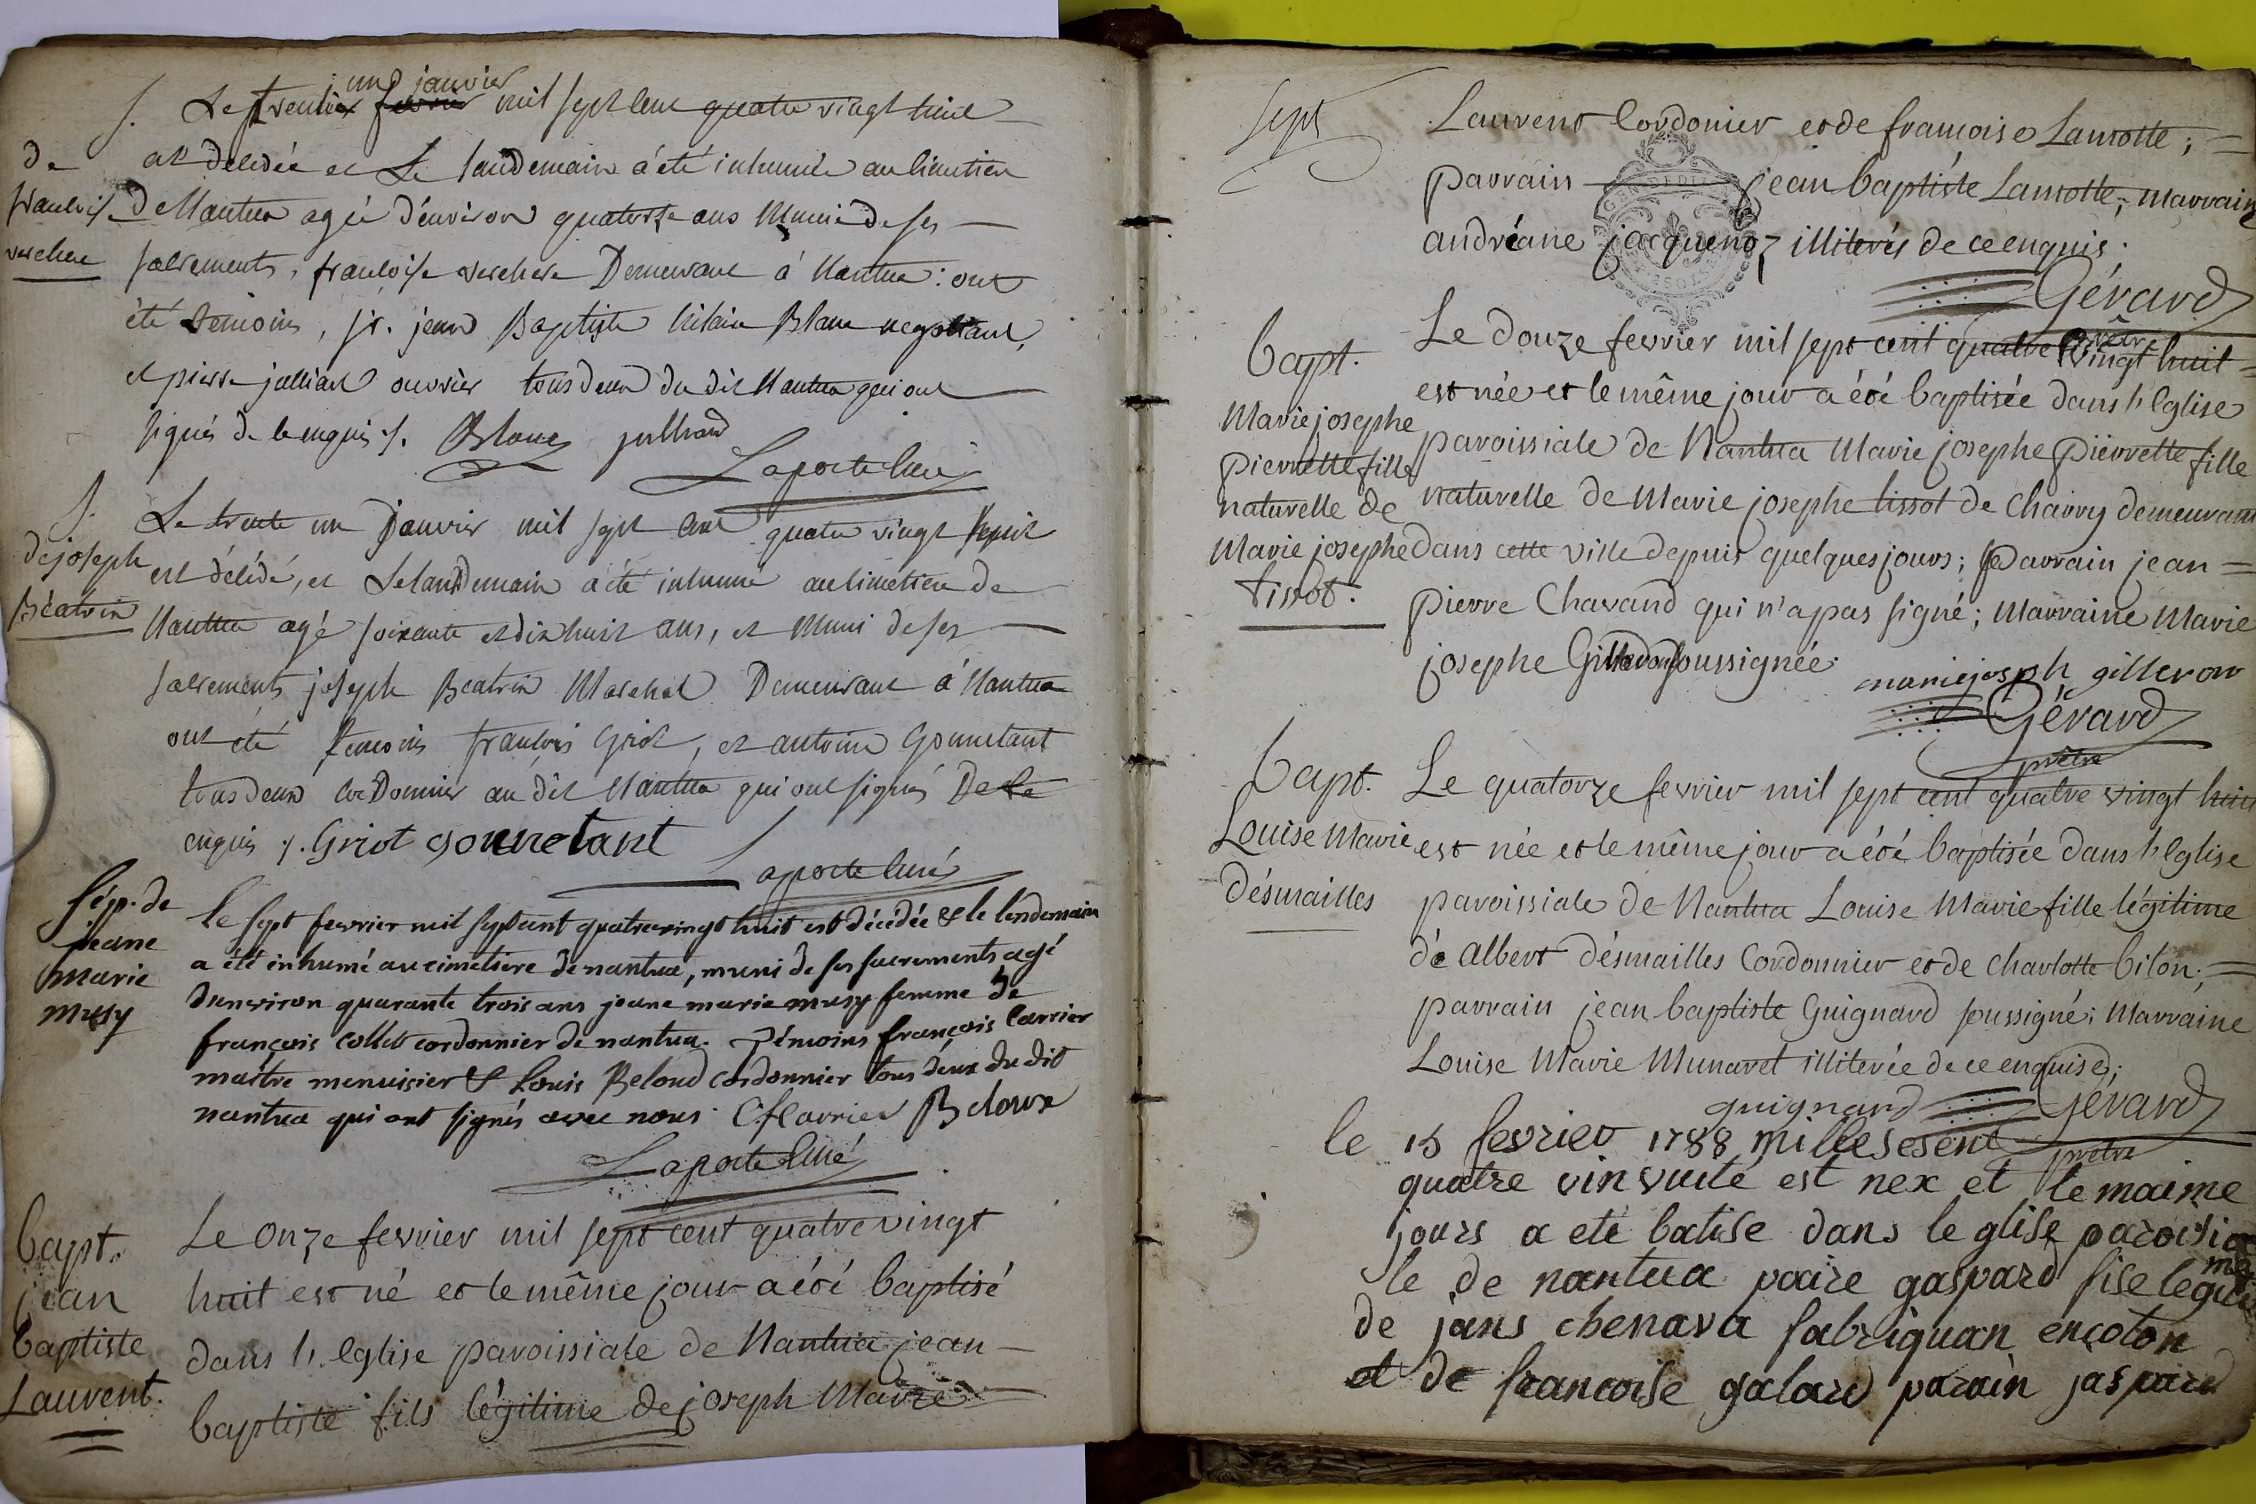 S. Le trentiex fevrier un janvier mil sept cent quatre vingt huit
de
francoise
verchere
est décédée et le landemain a été inhumée au cimetiere
de Nantua agée d'environ quatorze ans munie de ses
sacrements, francoise verchere Demeurant a Nantua : ont
été temoins, sr. jean Baptiste hilaire Blanc negotiant,
et pierre julliard ouvrier tous deux du dit Nantua qui ont
signés de ce enquis ./. Blanc julliard
Laporte Curé
S.
de joseph
Béatrix
Le trente un Janvier mil sept cent quatre vingt huit
est décédé, et le landemain a été inhumé au cimetiere de
Nantua agé soixante et dix huit ans, et muni de ses
sacrements joseph Beatrix Marchal Demeurant a Nantua
ont été temoins francois Griot, et antoine Gonnetant
tous deux cordonnier au dit Nantua qui ont signés De Ce
enquis ./. Griot gonnetant
Laporte Curé
Sép. de
jeane
marie
musy
le sept fevrier mil sept cent quatrevingt huit est décédée & le lendemain
a été inhumé au cimetiere de nantua, muni de ses sacrements agé
d'environ quarante trois ans jeane marie musy femme de
françois collet cordonnier de nantua. témoins françois Carrier
maitre menuisier & Louis Beloud cordonnier tous deux du dit
nantua qui ont signés avec nous. C.f Carrier Beloux
Laporte Curé
bapt.
jean
baptiste
Laurent.
Le onze fevrier mil sept cent quatre vingt
huit est né et le même jour a été baptisé
dans l'eglise paroissiale de Nantua jean
baptiste fils légitime de joseph Marie
sept
Laurent Cordonier et de francoise Lamotte;
parrain jean baptiste Lamotte; marraine
andréane jacquenoz illiterés de ce enquis;
Gérard
prêtre
bapt.
Marie josephe
pierrette fille
naturelle de
Marie josephe
tissot.
Le douze fevrier mil sept cent quatre vingt huit
est née et le même jour a été baptisée dans l'Eglise
paroissiale de Nantua Marie josephe pierrette fille
naturelle de Marie josephe tissot de Charry demeurant
dans cette ville depuis quelques jours; parrain jean
pierre Chavand qui n'a pas signé; Marraine Marie
josephe Gilleron soussignée.
marie joseph gilleron
Gérard
prêtre
bapt.
Louise Marie
désmailles
Le quatorze fevrier mil sept cent quatre vingt huit
est née et le même jour a été baptisée dans l'Eglise
paroissiale de Nantua Louise Marie fille légitime
de albert désmailles Cordonnier et de charlotte biton;
parrain jean baptiste Guignard soussigné; Marraine
Louise Marie Munaret illiterée de ce enquise;
guignard Gérard
prêtre
le 15 fevrier 1788 mille sesent
quatre vin vuité est nex et le maime
jours a eté batise dans le glise paroisia
le de nantua paire gaspard fise legiti
me
de jans chenava fabriquan encoton
et de francoise galard parain jaspard